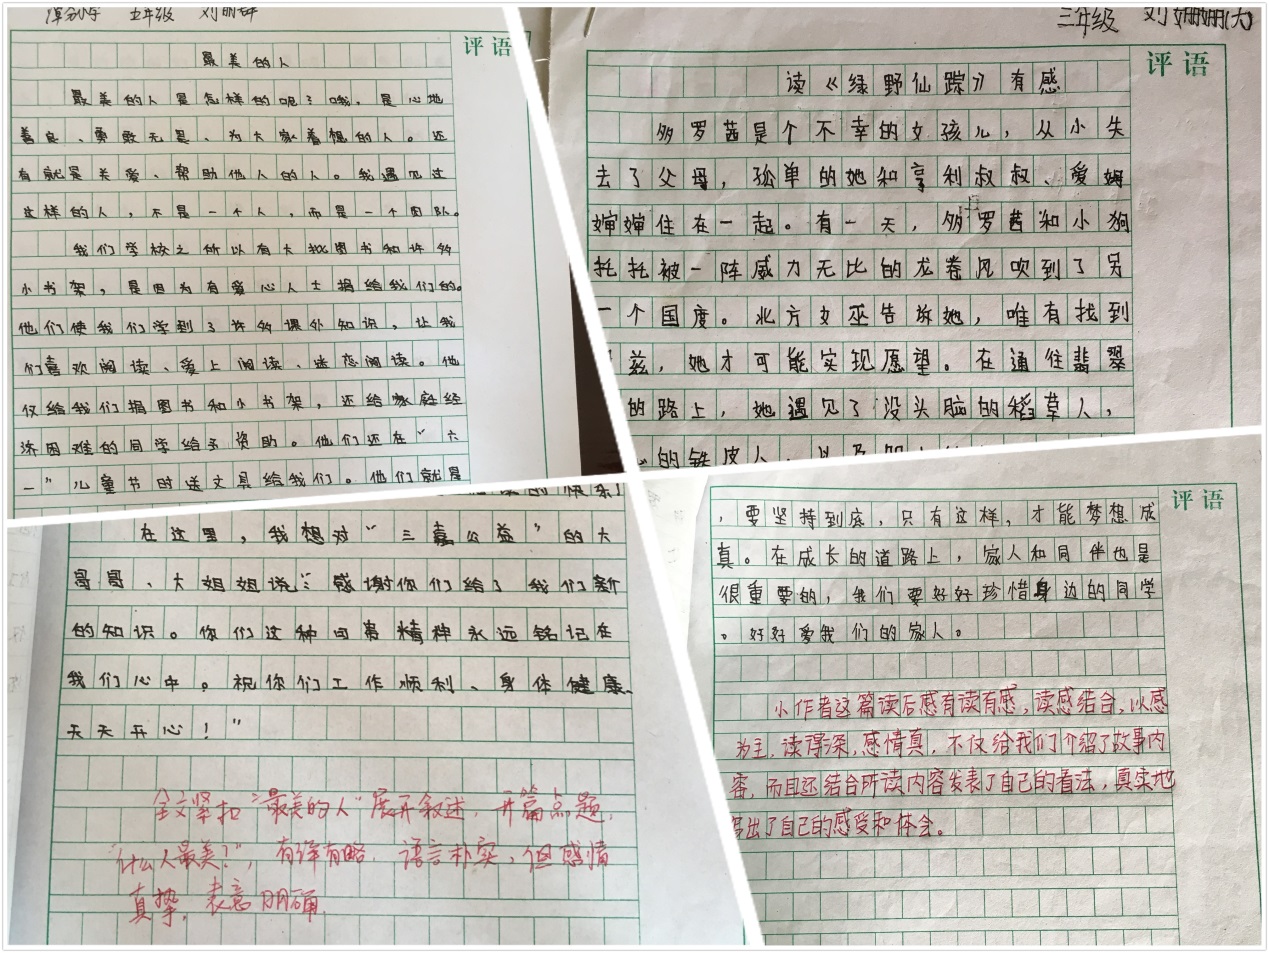 五年级
评语
最美的人
最美的人是怎样的呢？哦，是心地
善良、勇敢无畏、为大家着想的人。还
有就是关爱、帮助他人的人。我遇见过
这样的人，不是一个人，而是一个团队。
我们学校之所以有大批图书和许多
小书架，是因为有爱心人士捐给我们的。
他们使我们学到了许多课外知识，让我
们喜欢阅读、爱上阅读、迷恋阅读。他
仅给我们捐图书和小书架，还给家庭经
济困难的同学给予资助。他们还在“六
一”儿童节时送文具给我们。他们就是
三年级 刘姗姗(大)
评语
读《绿野仙踪》有感
多罗茜是个不幸的女孩儿，从小失
去了父母，孤单的她和亨利叔叔、爱姆
婶婶住在一起。有一天，多罗茜和小狗
托托被一阵威力无比的龙卷风吹到了另
一个国度。北方女巫告诉她，唯有找到
兹，她才可能实现愿望。在通往翡翠
的路上，她遇见了没头脑的稻草人，
的铁皮人，以及
在这里，我想对“三嘉公益”的大
哥哥、大姐姐说：“感谢你们给了我们新
的知识。你们这种可贵精神永远铭记在
我们心中。祝你们工作顺利、身体健康、
天天开心！”
全文紧扣“最美的人”展开叙述，开篇点题，
“什么人最美？”，有详有略，语言朴实，但感情
真挚，表意明确。
评语
，要坚持到底，只有这样，才能梦想成
真。在成长的道路上，家人和同伴也是
很重要的，我们要好好珍惜身边的同学
。好好爱我们的家人。
小作者这篇读后感有读有感，读感结合，以感
为主，读得深，感情真，不仅给我们介绍了故事内
容，而且还结合所读内容发表了自己的看法，真实地
写出了自己的感受和体会。